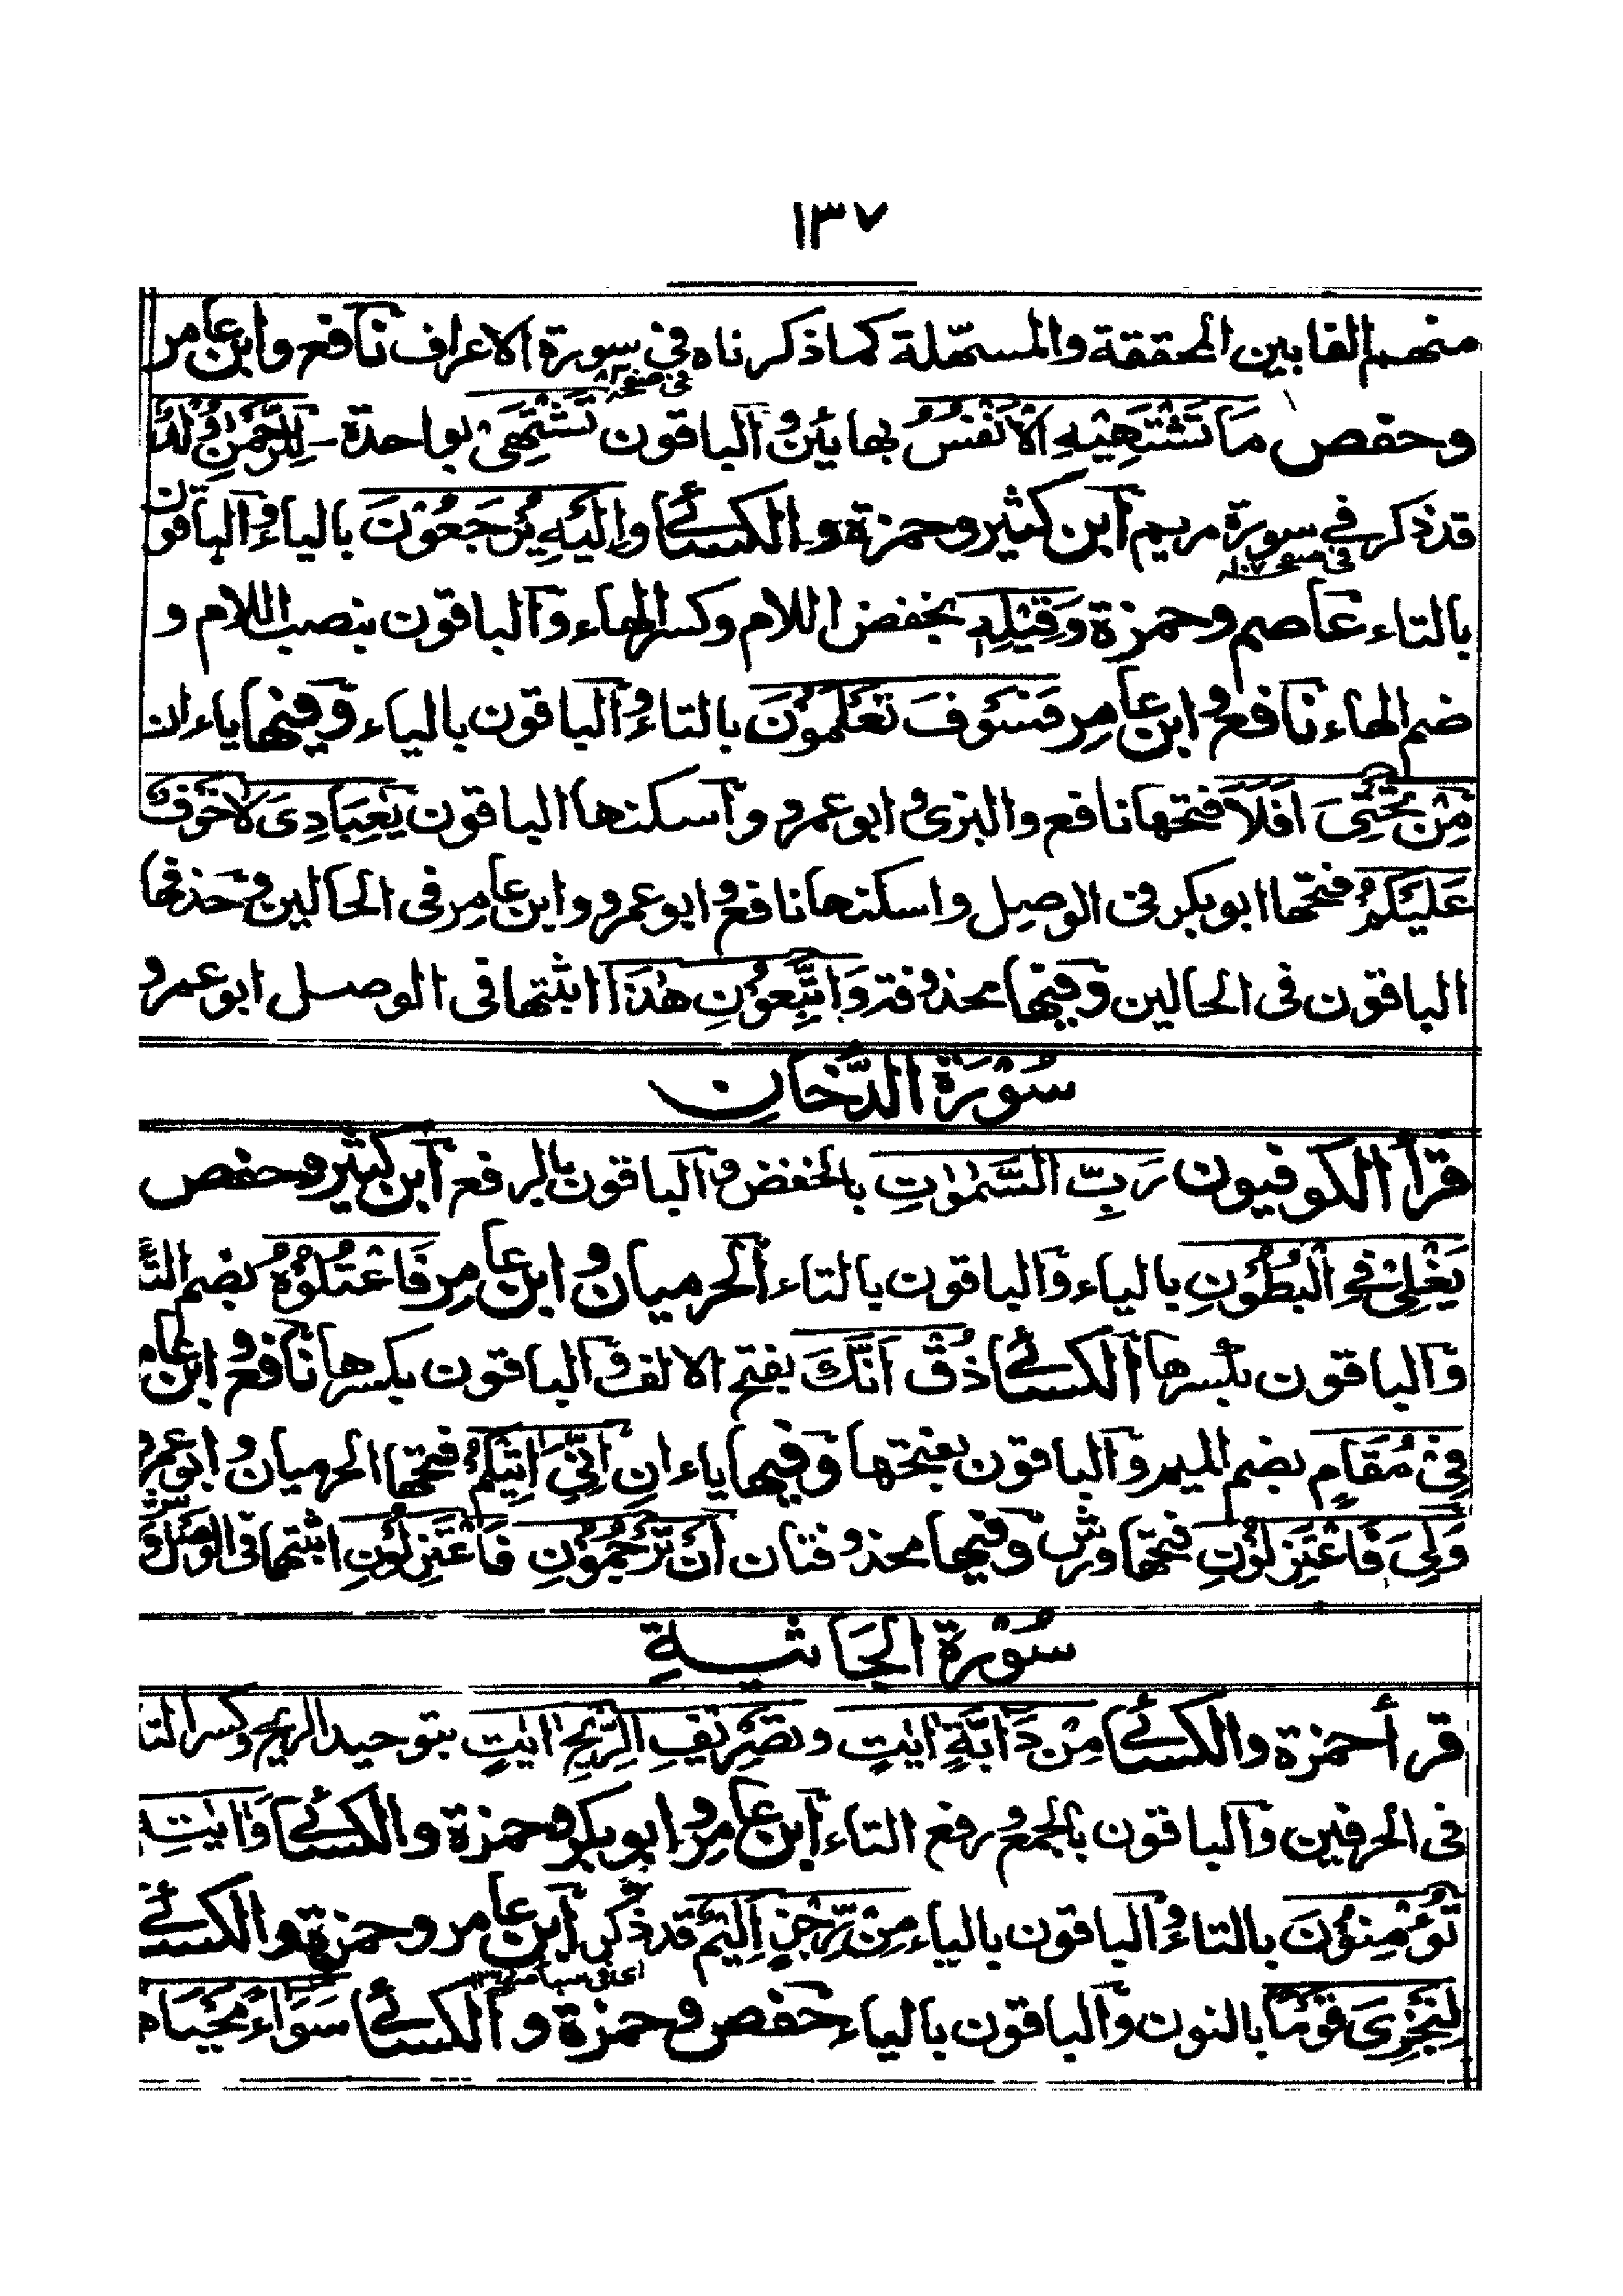 ١٣٧
منهم الفا بين المحققة والمسهّلة كما ذكرناه فى سورة الاعراف نافع وابن عامر
فى صفحه
وحفص مَا تَشْتَهِيْهِ الْاَنْفُسُ بهاءَيْن والباقون تَشْتَهِىْ بواحدة - لِلرَّحْمٰنِ وُلْدٌ
قد ذكر فى سورة مريم ابن كثير وحمزة والكسائى وَاِلَيْهِ يُرْجَعُوْنَ بالياء والباقون
فى صفحه ١٠٧
بالتاء عاصم وحمزة وَقِيْلِهٖ بخفض اللام وكسر الهاء والباقون بنصب اللام و
ضم الهاء نافع وابن عامر فَسَوْفَ تَعْلَمُوْنَ بالتاء والباقون بالياء وفيها ياءان
مِنْ تَحْتِىَ اَفَلَا فتحها نافع والبزى وابو عمرو واسكنها الباقون يٰعِبَادِىَ لَا خَوْفٌ
عَلَيْكُمُ فتحها ابوبكر فى الوصل واسكنها نافع وابو عمرو وابن عامر فى الحالين وحذفها
الباقون فى الحالين وفيها محذوفة وَاتَّبِعُوْنِ هٰذَا اثبتها فى الوصل ابو عمرو
سُوْرَةُ الدُّخَانِ
قرأ الكوفيون رَبِّ السَّمٰوٰتِ بالخفض والباقون بالرفع ابن كثير وحفص
يَغْلِىْ فِى الْبُطُوْنِ بالياء والباقون بالتاء الحرميان وابن عامر فَاعْتُلُوْهُ بضم التاء
والباقون بكسرها الكسائى ذُقْ اَنَّكَ بفتح الالف والباقون بكسرها نافع وابن عامر
فِىْ مُقَامٍ بضم الميم والباقون بفتحها وفيها ياءان اِنِّىْ اٰتِيْكُمْ فتحها الحرميان وابو عمرو
وَلِىَ فَاعْتَزِلُوْنِ فتحها ورش وفيها محذوفتان اَنْ تَرْجُمُوْنِ فَاعْتَزِلُوْنِ اثبتها فى الوصل ورش
سُوْرَةُ الْجَاثِيَةِ
قرأ حمزة والكسائى مِنْ دَابَّةٍ اٰيٰتٍ وتَصْرِيْفِ الرِّيْحِ اٰيٰتٍ بتوحيد الريح وكسر التاء
فى الحرفين والباقون بالجمع ورفع التاء ابن عامر وابوبكر وحمزة والكسائى وَاٰيٰتِهٖ
تُؤْمِنُوْنَ بالتاء والباقون بالياء مِنْ رِّجْزٍ اَلِيْمٌ قد ذكر ابن عامر وحمزة والكسائى
اى فى سبا
لِنَجْزِىَ قَوْمًا بالنون والباقون بالياء حفص وحمزة والكسائى سَوَاءً مَحْيَاهُمْ